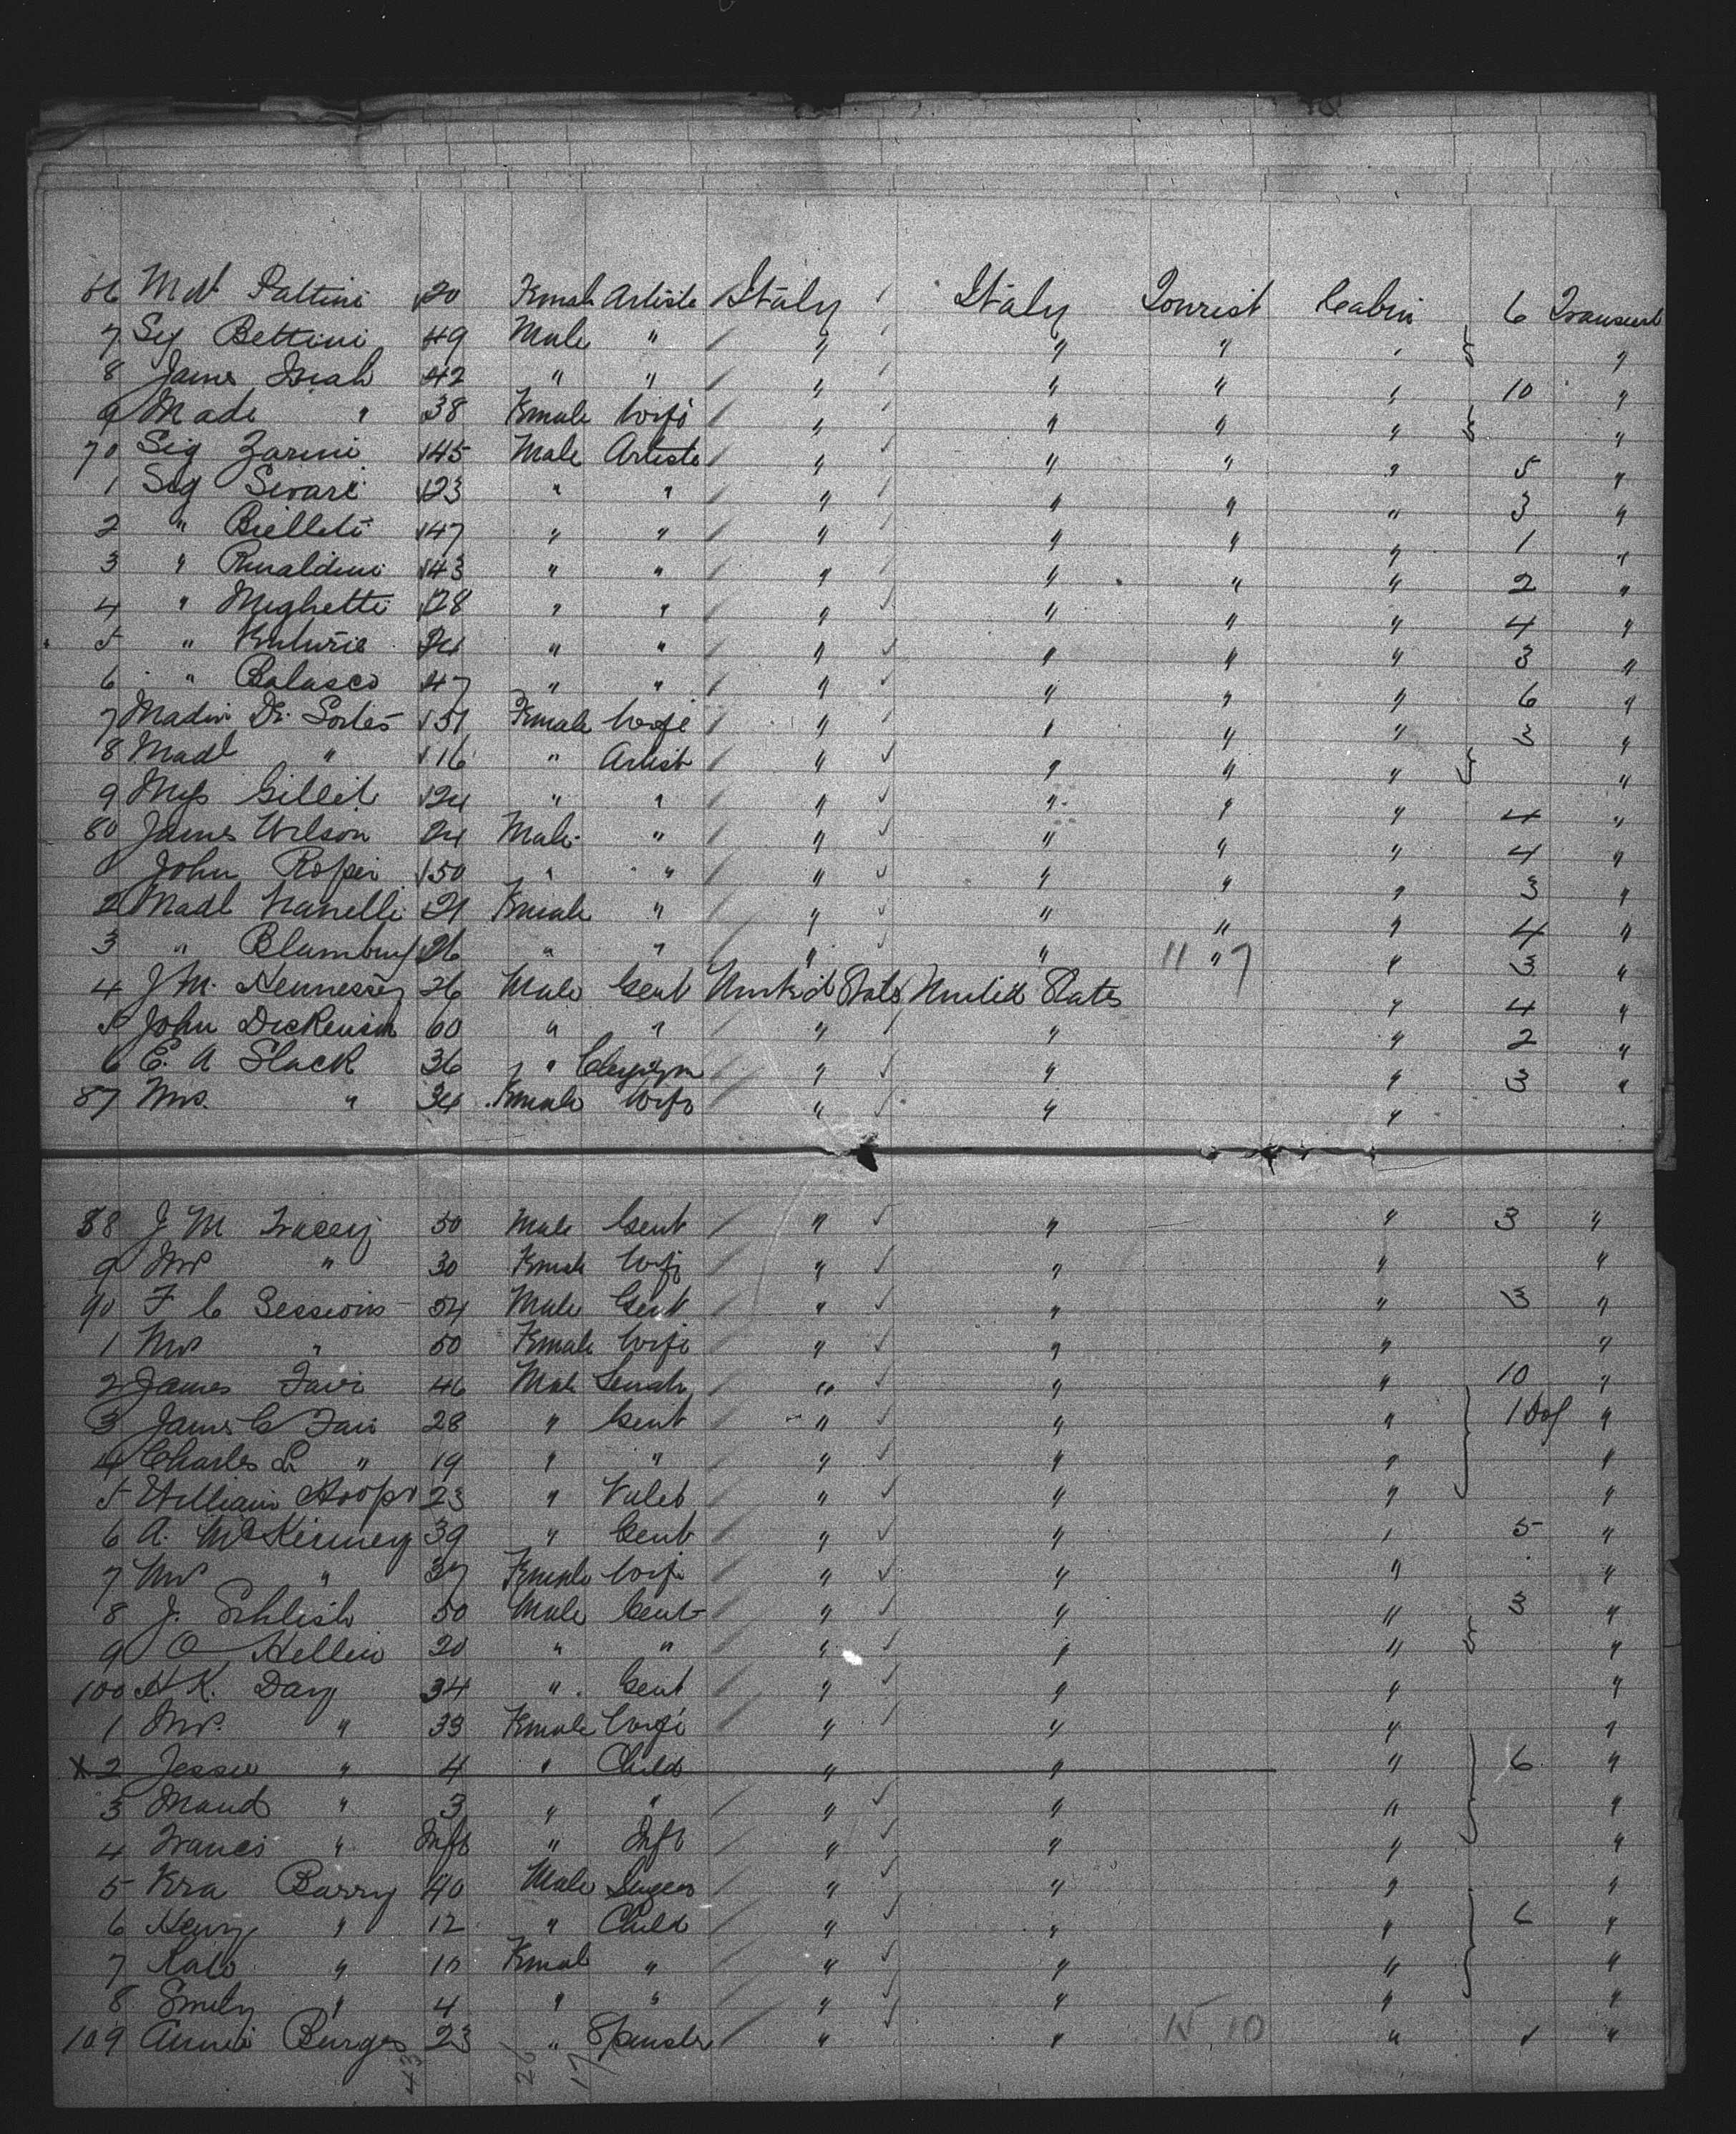 66 Mdl Pattini 20 Female Artiste Italy Italy Tourist Cabin 6 Transient
7 Sig Bettini 49 Male " " " " " "
8 James 42 " " " " " " 10 "
9 Made " 38 Female Wife " " " " "
70 Sig Zarini 45 Male Artiste " " " " 5 "
1 Sig Sivari 23 " " " " " " 3 "
2 " Bielleti 47 " " " " " " 1 "
3 " Rinaldini 43 " " " " " " 2 "
4 " Mighetti 28 " " " " " " 4 "
5 " 24 " " " " " " 3 "
6 " Balasco 47 " " " " " " 6 "
7 Madm De Sortes 51 Female Wife " " " " 3 "
8 Madl " 16 " Artist " " " " "
9 Miss Gillet 24 " " " " " " 4 "
80 James Wilson 24 Male " " " " " 4 "
1 John Roper 50 " " " " " " 3 "
2 Madl Nanelli 21 Female " " " " " 4 "
3 " Blumbug 26 " " " " 11 " 7 " 3 "
4 J M. Hennessey 26 Male Gent United States United States " 4 "
5 John Dickenson 60 " " " " " 2 "
6 E. A Slack 36 " Clergym " " " 3 "
87 Mrs. " 34 Female Wife " " "
88 J M Tracey 50 Male Gent " " " 3 "
9 Mrs " 30 Female Wife " " " "
90 F C Sessions 54 Male Gent " " " 3 "
1 Mrs " 50 Female Wife " " " "
2 James Fair 46 Male Senator " " " 10 "
3 James C Fair 28 " Gent " " " 1 Dog "
4 Charles L " 19 " " " " " "
5 William Hooper 23 " Valet " " " "
6 A. McKinney 39 " Gent " " " 5 "
7 Mrs " 37 Female Wife " " " "
8 J. Schlish 50 Male Gent " " " 3 "
9 O Hellen 20 " " " " " "
100 H K. Day 34 " Gent " " " "
1 Mrs. " 33 Female Wife " " " "
X 2 Jessie " 4 " Child " " " 6 "
3 Maud " 3 " " " " " "
4 Frances " Inft " Inft " " " "
5 Barry 40 Male " " " "
6 Henry " 12 " Child " " " 6 "
7 Kate " 10 Female " " " " "
8 Emily " 4 " " " " " "
109 Annie Burges 23 " Spinster " " 15 10 " 1 "
43 26 17